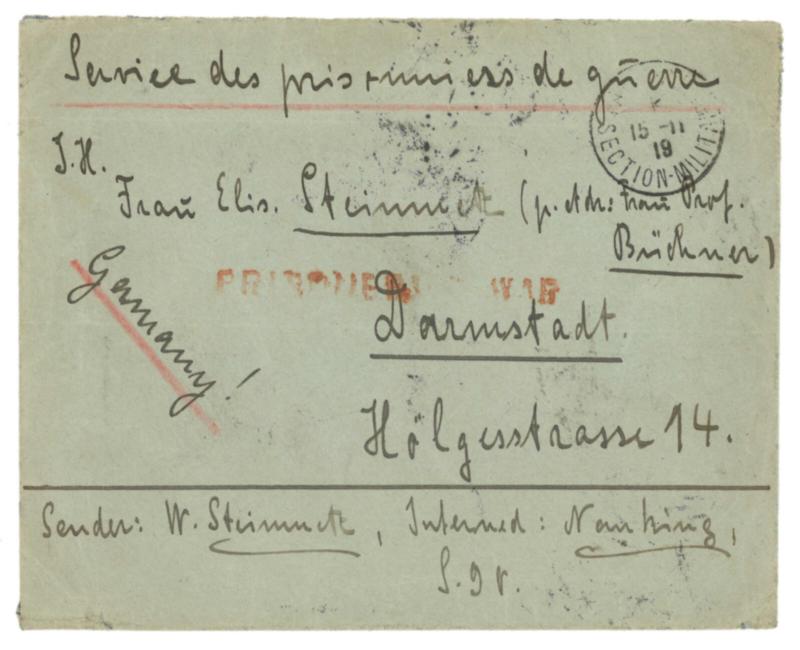 Service des prisonniers de guerre
15-11
19
SECTION-MILITA
I.H.
Frau Elis. Steinmetz (p. Adr: Frau Prof.
Büchner)
PRISONER WAR
Germany!
Darmstadt.
Hölgesstrasse 14.
Sender: W. Steinmetz, Interned: Nanking,